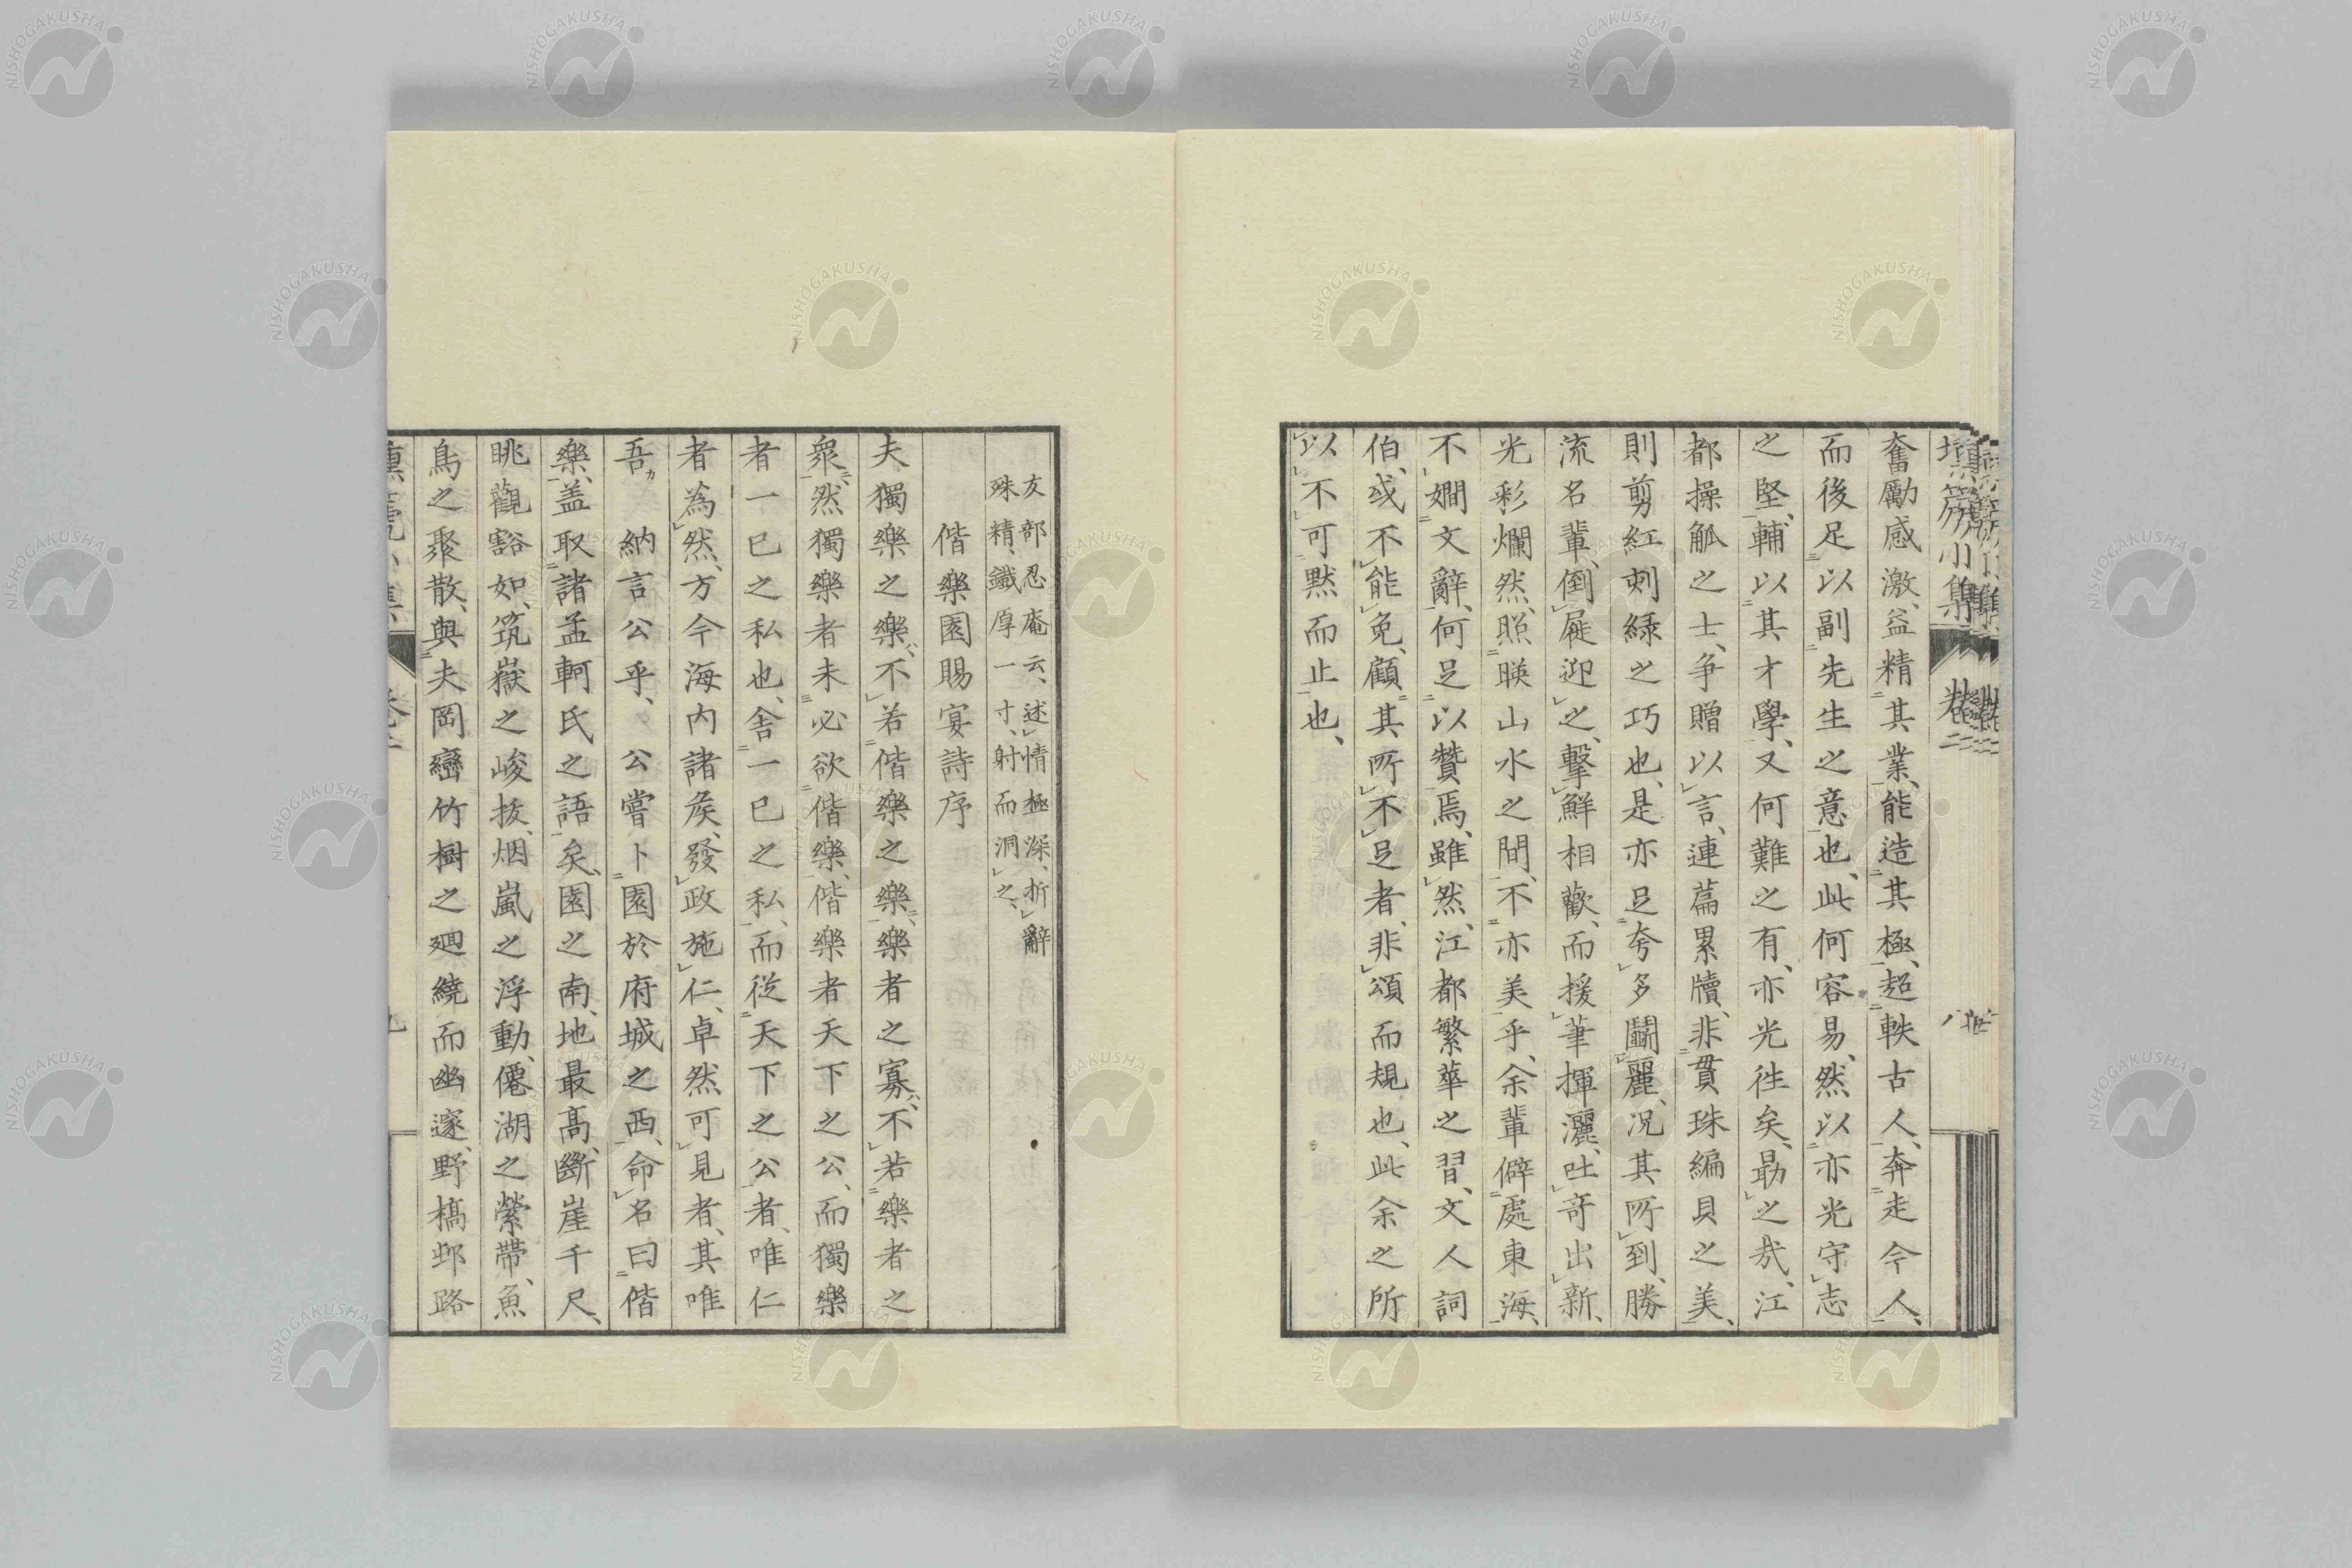 奮勵感激、益精其業、能造其極、超軼古人、奔走今人、
而後足以副先生之意也、此何容易、然以亦光守志
之堅、輔以其才學、又何難之有、亦光徃矣、勗之哉、江
都操觚之士、争贈以言、連篇累牘、非貫珠編貝之美、
則剪紅刺綠之巧也、是亦足夸多鬭麗、况其所到、勝
流名輩、倒屣迎之、擊鮮相歡、而援筆揮灑、吐奇出新、
光彩爛然、照暎山水之間、不亦美乎、余輩僻處東海、
不嫺文辭、何足以贊焉、雖然、江都繁華之習、文人詞
伯、或不能免、顧其所不足者、非頌而規也、此余之所
以不可默而止也、
友部忍庵云、述情極深、折辭
殊精、鐵厚一寸、射而洞之、
偕樂園賜宴詩序
夫獨樂之樂、不若偕樂之樂、樂者之寡、不若樂者之
衆、然獨樂者未必欲偕樂、偕樂者天下之公、而獨樂
者一己之私也、舍一己之私、而從天下之公者、唯仁
者為然、方今海内諸矦、發政施仁、卓然可見者、其唯
吾 納言公乎、 公嘗卜園於府城之西、命名曰偕
樂、盖取諸孟軻氏之語矣、園之南、地最高、斷崖千尺、
眺觀豁如、筑嶽之峻抜、烟嵐之浮動、僊湖之縈帶、魚
鳥之聚散、與夫岡巒竹樹之廻繞而幽邃、野橋邨路